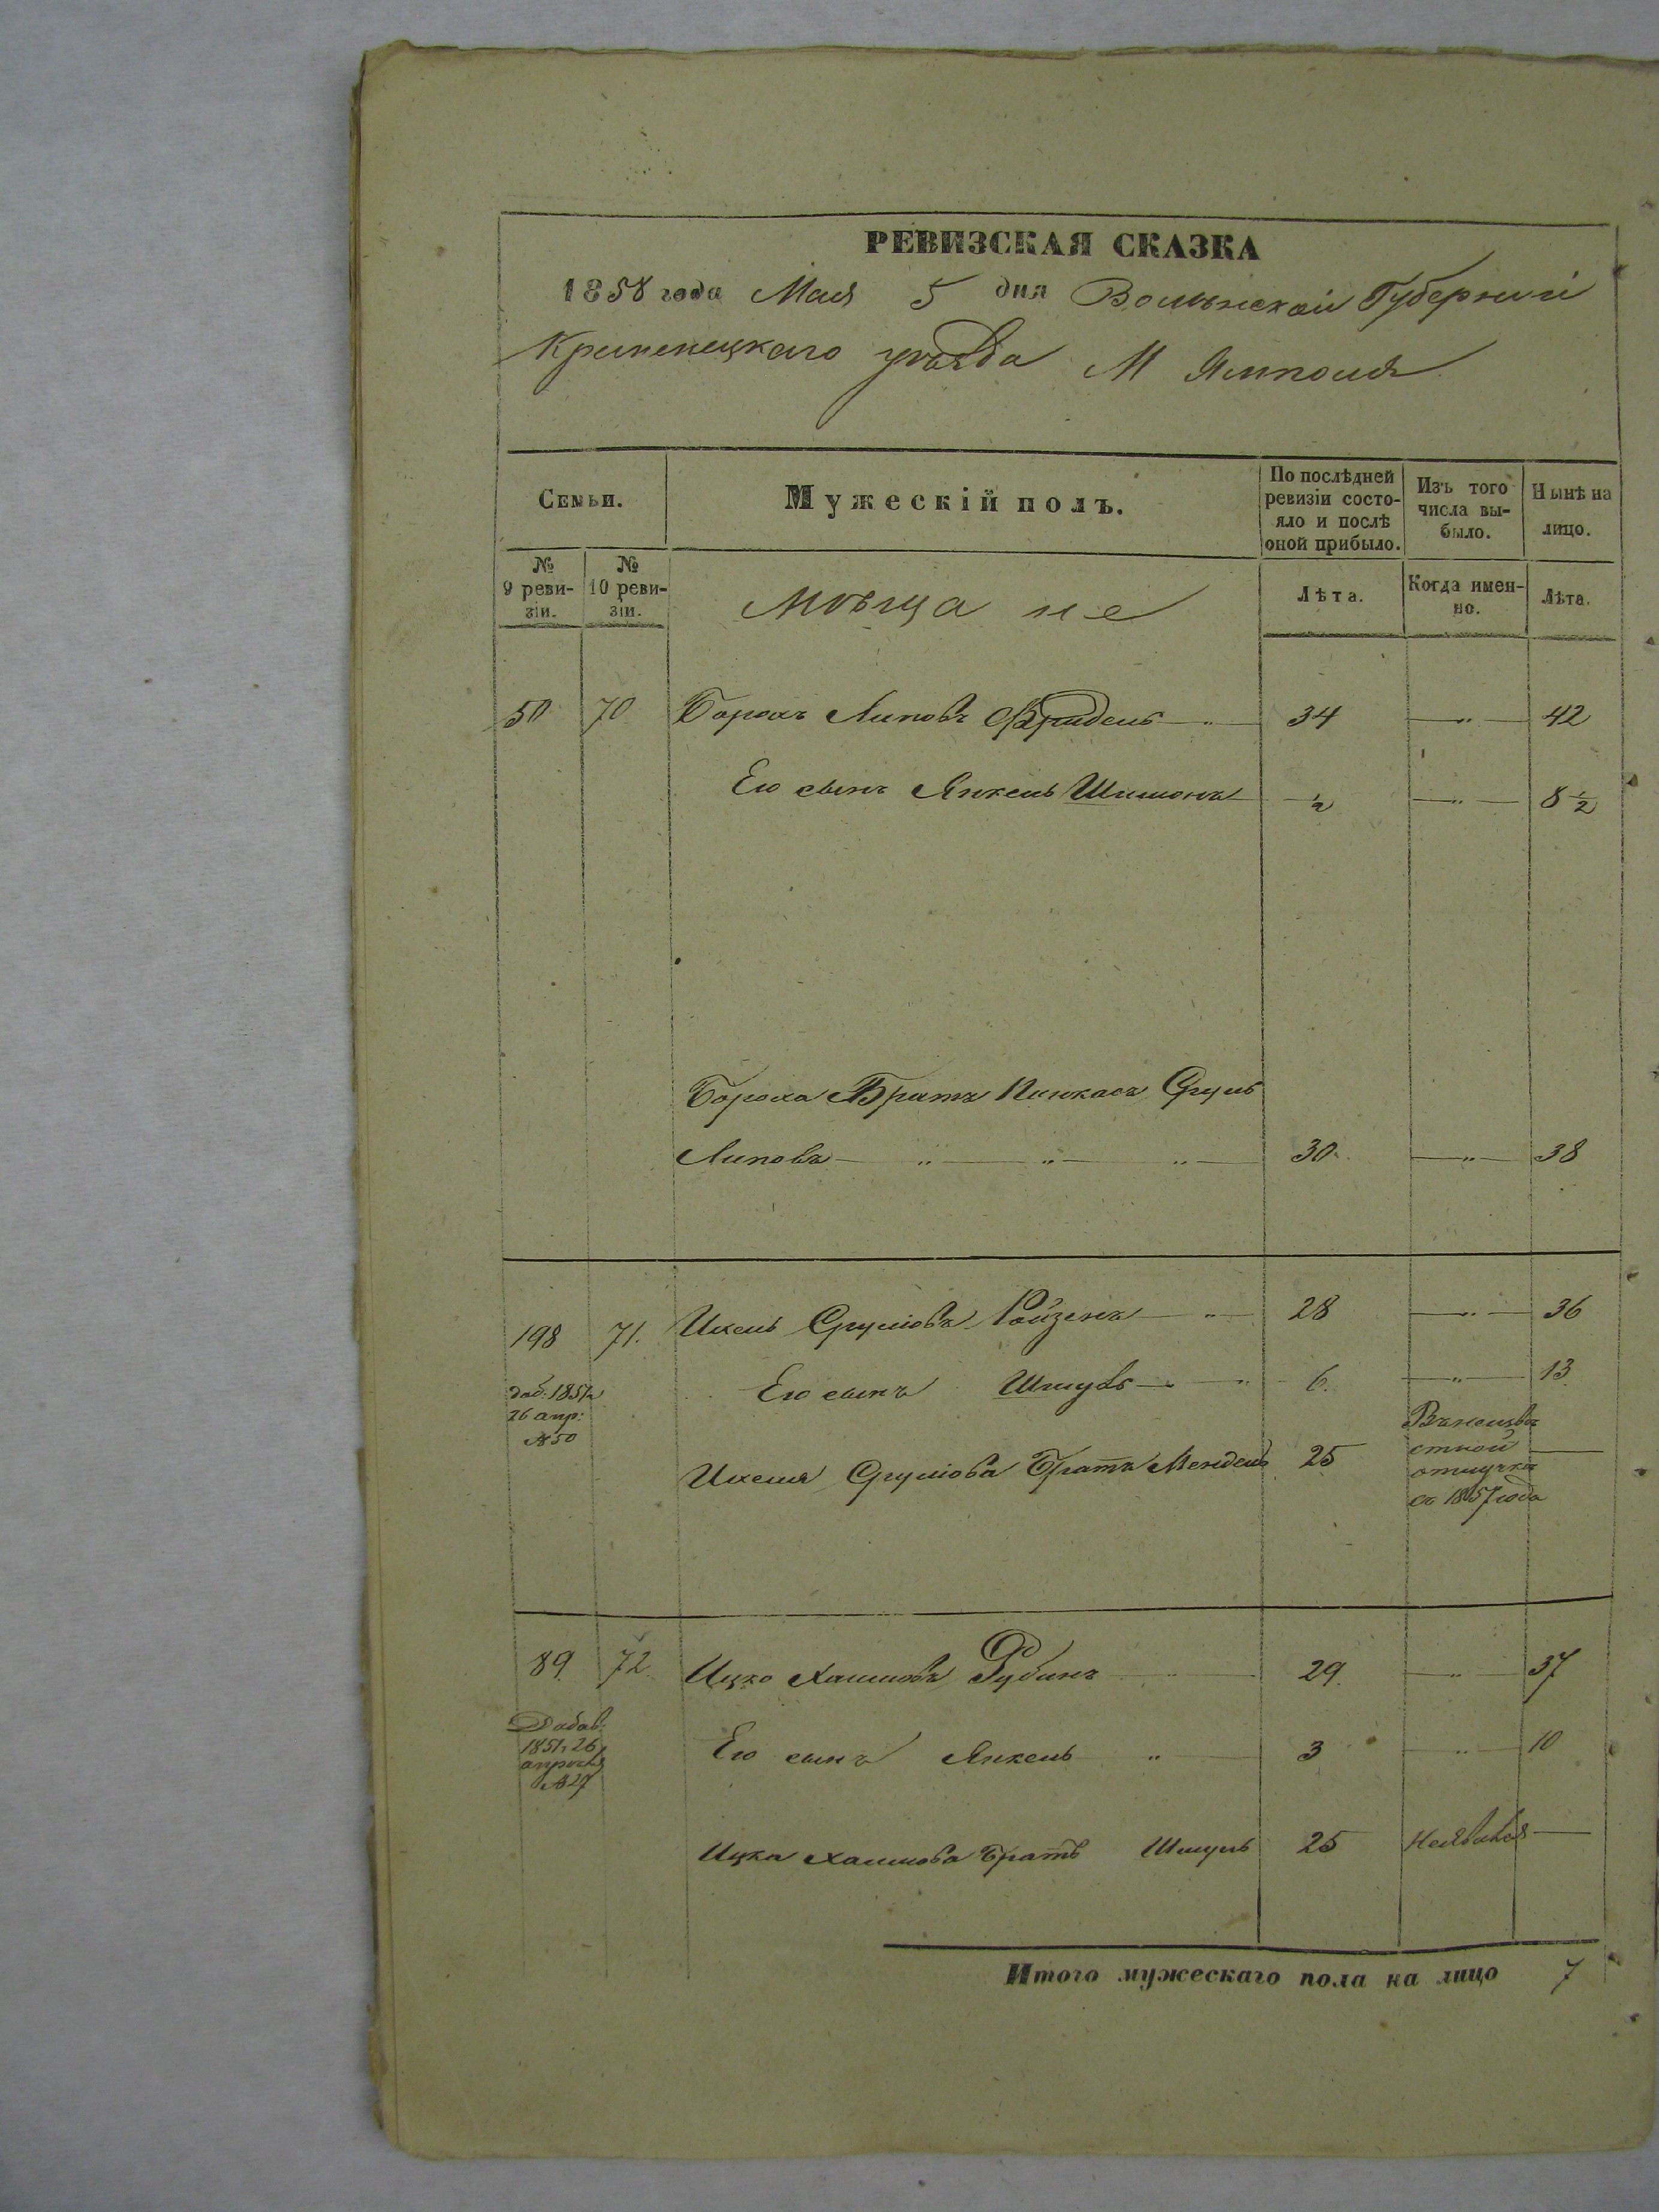 РЕВИЗСКАЯ СКАЗКА
1858 года Мая 5 дня Волынской Губернии
Кременецкаго уѣзда М Ямполя
Семьи.
Мужескій полъ.
По послѣдней ревизіи состо-
яло и послѣ
оной прибыло.
Изъ того
числа вы-
было.
Нынѣ на
лицо.
№
9 реви-
зіи.
№
10 реви-
зіи.
Мѣщане
Лѣта.
Когда имен-
но.
Лѣта.
50 70 Борохъ Липовъ Фридель — " — 34 — " — 42
Его сынъ Янкель Шимонъ — ½ — " — 8 ½
Бороха Братъ Пинкасъ Сруль
Липовъ — " — " — " — 30 — " — 38
198 71. Икель Срулiовъ Ройзенъ — " — 28 — " — 36
доб: 1851
26 апр:
№ 50
Его сынъ Шмуль — " — 6. — " — 13
Икеля Срулiова Братъ Мендель 25 Въ неизвѣ
стной
отлучкѣ
съ 1857 года —
89 72 Ицко Хаимовъ Рубинъ — " — 29. — " — 37
Добав:
1851 26
апрѣля
№ 27
Его сынъ Янкель " — 3 — " — 10
Ицка Хаимова Братъ Шмуль 25 Неявился —
Итого мужескаго пола на лицо 7